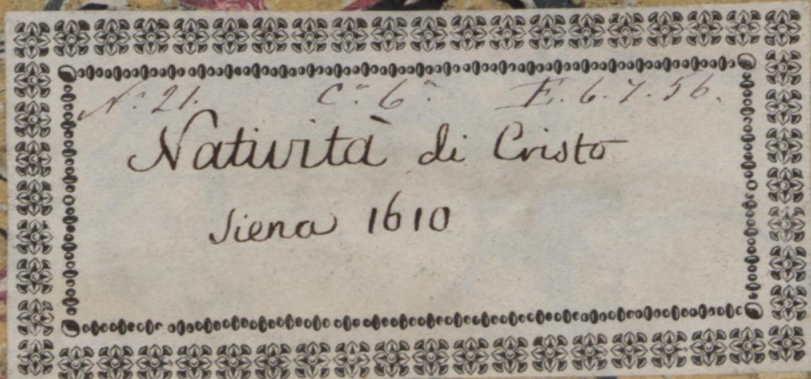 N.° 21. C.° 6.° E. 6. 7. 56.
Natività di Cristo
Siena 1610